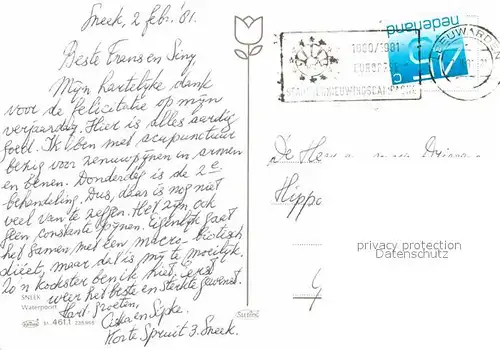 Sneek, 2 febr. '81.
Beste Frans en Siny
Mijn hartelijke dank
voor de felicitatie op mijn
verjaardag. Hier is alles aardig
goed. Ik ben met acupunctuur
bezig voor zenuwpijnen in armen
en benen. Donderdag is de 2e
behandeling. Dus, daar is nog niet
veel van te zeggen. Het zijn ook
geen constante pijnen. Eigenlijk gaat
het samen met een macro-biotisch
dieet, maar dat is mij te moeilijk.
Zo'n kookster ben ik niet. Verder
weer het beste en sterkte gewenst.
Hart. groeten,
en Sipke.
Korte Spruit 3. Sneek.
SNEEK
Waterpoort
51.461.1
nederland
c
LEEUWARDEN
1980/1981
EUROPESE
STADSVERNIEUWINGSCAMPAGNE
De Heer
Hippo
privacy protection
Datenschutz